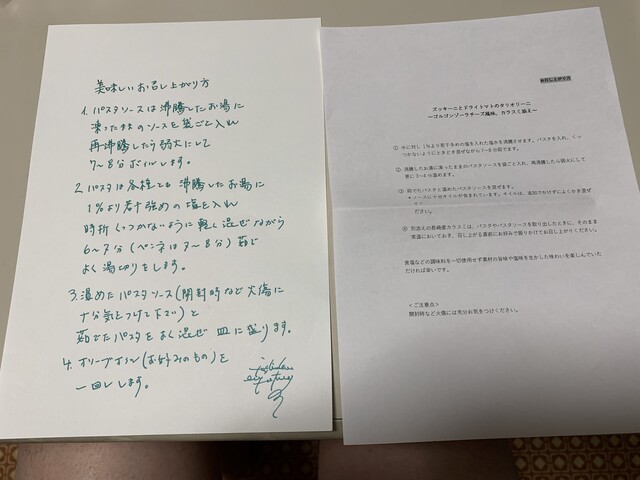 美味しいお召し上がり方
1. パスタソースは沸騰したお湯に
凍ったままのソースを袋ごと入れ
再沸騰したら弱火にして
7〜8分ボイルします。
2. パスタは各種とも沸騰したお湯に
1%より若干強めの塩を入れ
時折くっつかないように軽く混ぜながら
6〜7分(ペンネは7〜8分)茹で
よく湯切りをします。
3. 温めたパスタソース(開封時など火傷に
十分気をつけて下さい)と
茹でたパスタをよく混ぜ 皿に盛ります。
4. オリーブオイル(お好みのもの)を
一回しします。
お召し上がり方
ズッキーニとドライトマトのタリオリーニ
〜ゴルゴンゾーラチーズ風味、カラスミ添え〜
① 水に対し1%より若干多めの塩を入れた塩水を沸騰させます。パスタを入れ、くっ
つかないようにときどき混ぜながら7〜8分茹でます。
② 沸騰したお湯に凍ったままのパスタソースを袋ごと入れ、再沸騰したら弱火にして
更に3〜4分温めます。
③ 茹でたパスタと温めたパスタソースを混ぜます。
＊ソースに十分オイルが含まれています。オイルは、追加でかけずによくかき混ぜ
ください。
④ 別添えの長崎産カラスミは、パスタやパスタソースを取り出したときに、そのまま
常温においておき、召し上がる直前にお好みで振りかけてお召し上がりください。
食塩などの調味料を一切使用せず素材の旨味や塩味を生かした味わいを楽しんでいた
だければ幸いです。
＜ご注意点＞
開封時など火傷には充分お気をつけください。